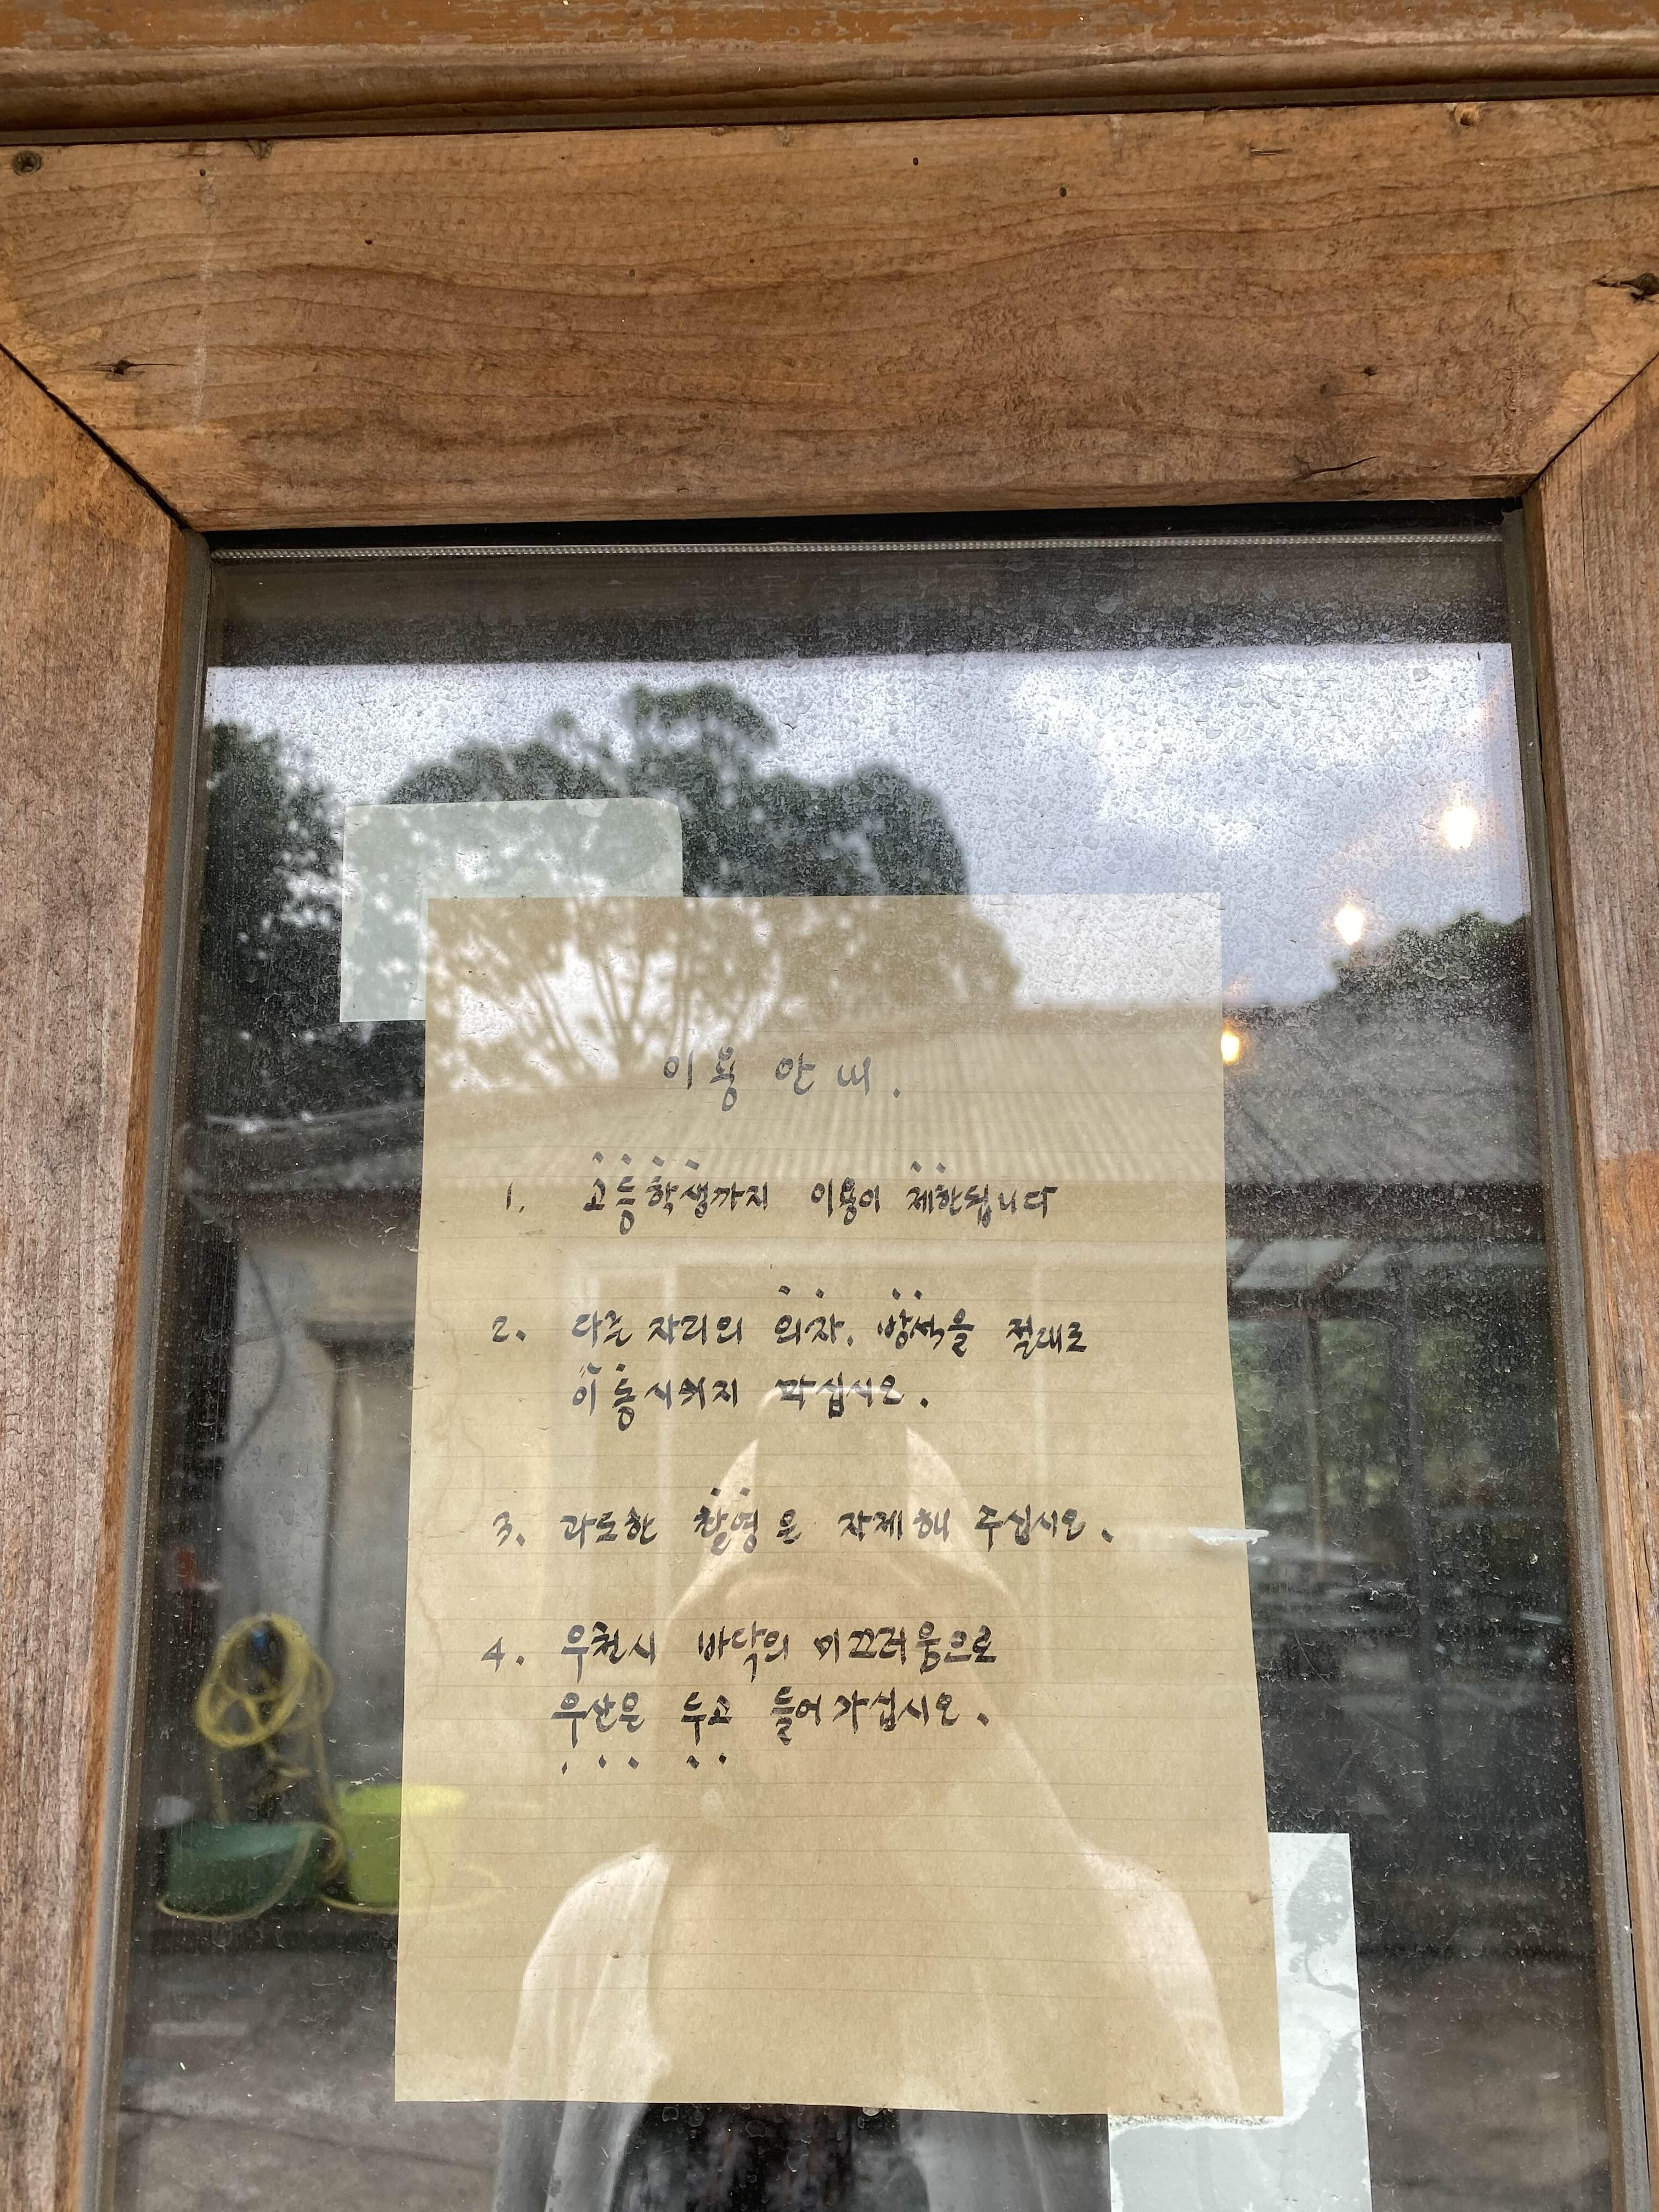 이용 안내.
1. 고등학생까지 이용이 제한됩니다
2. 다른 자리의 의자, 방석을 절대로
이동시키지 마십시오.
3. 과도한 촬영은 자제해 주십시오.
4. 우천시 바닥의 미끄러움으로
우산은 두고 들어가십시오.